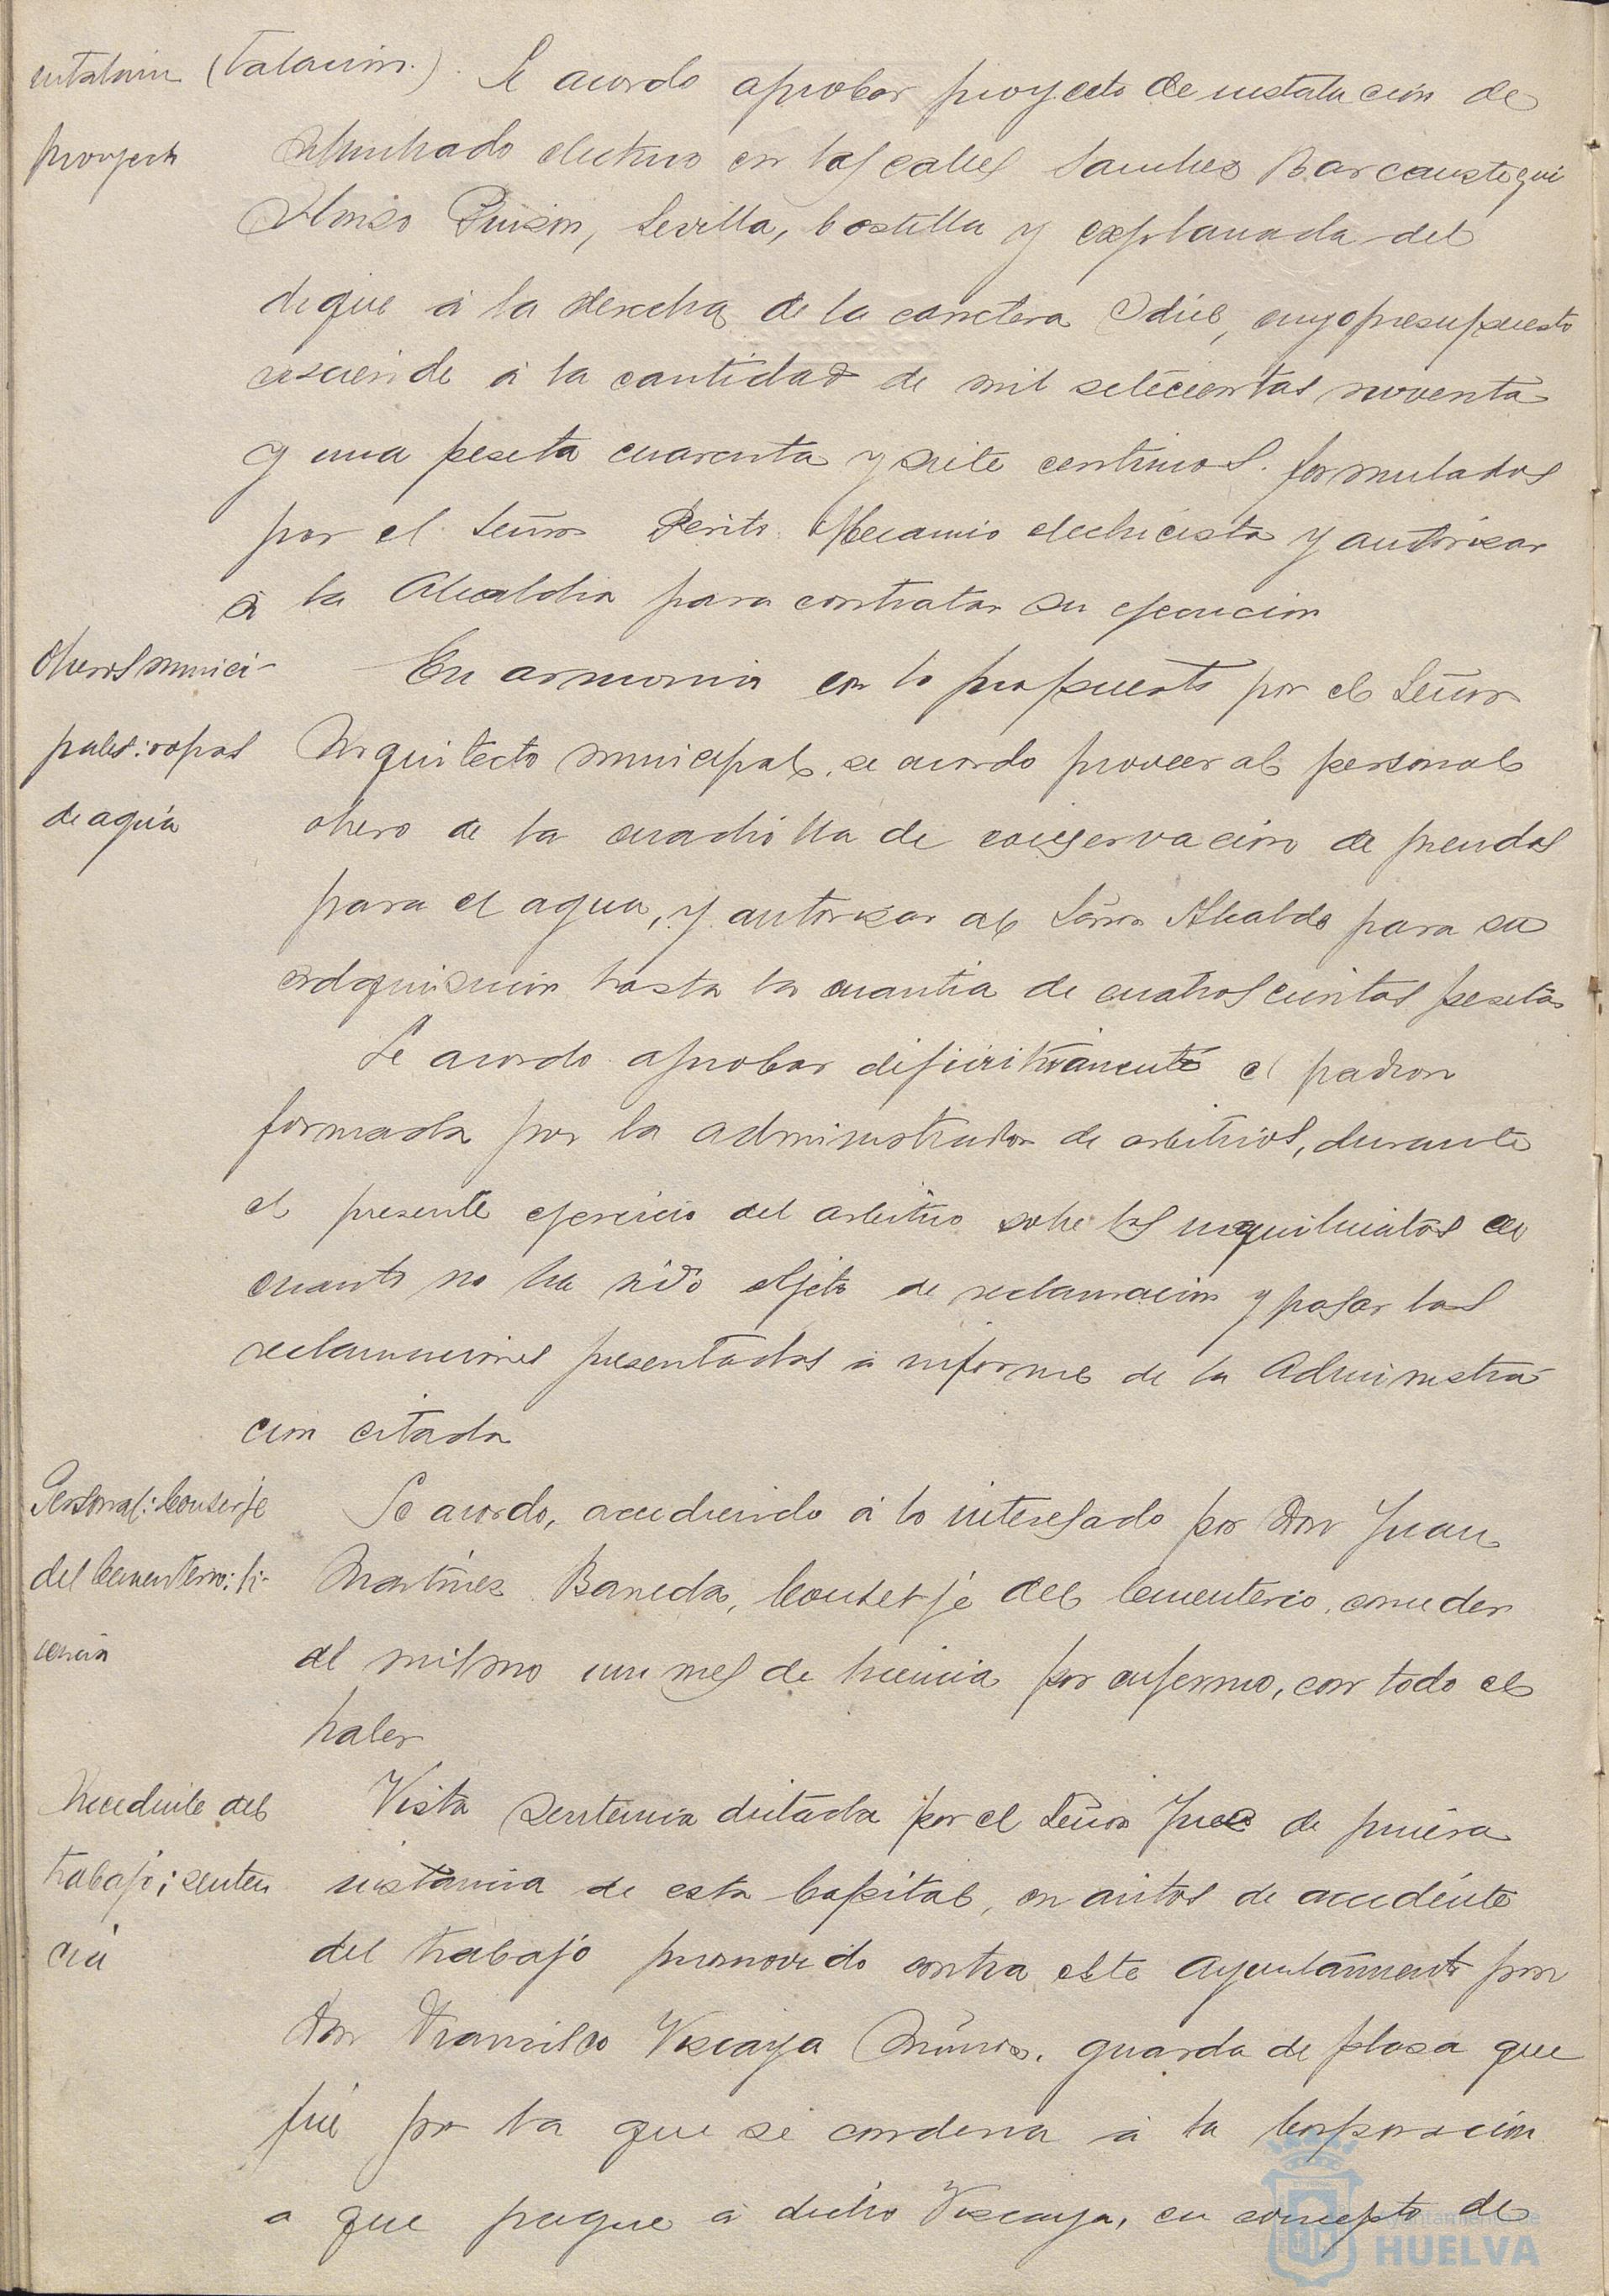 (talacion.). Se acordo aprobar proyecto de instalacion de
proyecto
Alumbrado electrico en las calles Sanchez Barcaiztegui
Alonso Pinzon, Sevilla, Costilla y explanada del
dique á la derecha de la carretera Odiel, cuyo presupuesto
asciende á la cantidad de mil setecientas noventa
y una peseta cuarenta y siete centimos. formulados
por el Señor Perito Mecanico electricista y autorizar
á la Alcaldia para contratar su ejecucion
Obreros munici-
En armonia con lo propuesto por el Señor
pales: ropas
Arquitecto municipal, se acordo proveer al personal
de agua
obrero de la cuadrilla de conservacion de prendas
para el agua, y autorizar al Señor Alcalde para su
adquisicion hasta la cuantia de cuatroscientas pesetas
Se acordo aprobar difinitivamente el padron
formada por la administrador de arbitrios, durante
el presente ejercicio del arbitrio sobre los inquilinatos en
cuanto no ha sido objeto de reclamacion y pasar las
reclamaciones presentadas á informe de la Administra
cion citada
Personal: Conserje
Se acordo, accediendo á lo interesado por don Juan
del Cementerio: li-
Martinez Baneda, Conserje del Cementerio, conceder
cencia
al mismo un mes de licencia por enfermo, con todo el
haber
Accidente del
Vista sentencia dictada por el Señor Juez de primera
trabajo; senten
instancia de esta Capital, en autos de accidente
cia
del trabajo promovido contra este Ayuntamiento por
don Francisco Viscaya Muñoz, guarda de plaza que
fué por la que se condena á la Corporacion
a que pague á dicho Viscaya, en concepto de
Ayuntamiento de
HUELVA